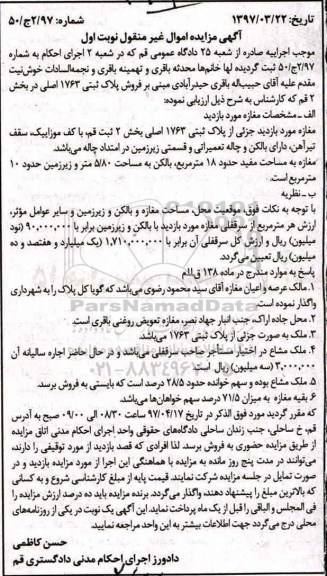 تاریخ: ۱۳۹۷/۰۳/۲۲ شماره: ۲/۹۷ج/۵۰
آگهی مزایده اموال غیر منقول نوبت اول
موجب اجراییه صادره از شعبه ۲۵ دادگاه عمومی قم که در شعبه ۲ اجرای احکام به شماره
۲/۹۷ج/۵۰ ثبت گردیده لها خانم‌ها محدثه باقری و تهمینه باقری و نجمه‌السادات خوش‌نیت
مقدم علیه آقای حبیب‌اله باقری حیدرآبادی مبنی بر فروش پلاک ثبتی ۱۷۶۳ اصلی در بخش
۲ قم که کارشناس به شرح ذیل ارزیابی نموده:
الف ـ مشخصات مغازه مورد بازدید
مغازه مورد بازدید جزئی از پلاک ثبتی ۱۷۶۳ اصلی بخش ۲ ثبت قم، با کف موزاییک، سقف
تیرآهن، دارای بالکن و چاله تعمیراتی و قسمتی زیرزمین در امتداد چاله می‌باشد.
مغازه به مساحت مفید حدود ۱۸ مترمربع، بالکن به مساحت ۵/۸۰ متر و زیرزمین حدود ۱۰
مترمربع است.
ب ـ نظریه
با توجه به نکات فوق، موقعیت محل، مساحت مغازه و بالکن و زیرزمین و سایر عوامل مؤثر،
ارزش هر مترمربع از سرقفلی مغازه مورد بازدید با بالکن و زیرزمین برابر با ۹۰،۰۰۰،۰۰۰ (نود
میلیون) ریال و ارزش کل سرقفلی آن برابر با ۱،۷۱۰،۰۰۰،۰۰۰ (یک میلیارد و هفتصد و ده
میلیون) ریال تعیین می‌گردد.
پاسخ به موارد مندرج در ماده ۱۳۸ ق‌ا‌ا‌م
۱. مالک عرصه و اعیان مغازه آقای سید محمود رضوی می‌باشد که گویا کل پلاک را به شهرداری
واگذار نموده است.
۲. محل جاده اراک، جنب انبار جهاد نصر، مغازه تعویض روغنی باقری است.
۳. ملک به صورت جزئی از پلاک ثبتی ۱۷۶۳ می‌باشد.
۴. ملک مشاع در اختیار مستأجر صاحب سرقفلی می‌باشد و در حال حاضر اجاره سالیانه آن
۳،۰۰۰،۰۰۰ (سه میلیون) ریال است.
۵. ملک مشاع بوده و سهم خوانده حدود ۲۸/۵ درصد است که بایستی به فروش برسد.
۶. بقیه مغازه به میزان ۷۱/۵ درصد سهم خواهان‌ها می‌باشد.
که مقرر گردید مورد فوق الذکر در تاریخ ۹۷/۰۴/۱۷ ساعت ۰۸/۳۰ الی ۰۹/۰۰ صبح به آدرس
قم، خ ساحلی، جنب زندان ساحلی دادگاه‌های حقوقی واحد اجرای احکام مدنی اتاق مزایده
از طریق مزایده حضوری به فروش برسد. لذا افرادی که قصد بازدید از مورد توقیفی را دارند،
می‌توانند در مدت پنج روز مانده به مزایده با هماهنگی این اجرا از مورد مزایده بازدید و در
صورت تمایل در جلسه مزایده شرکت نمایند. قیمت پایه از مبلغ کارشناسی شروع و به کسانی
که بالاترین مبلغ را پیشنهاد دهند، واگذار می‌گردد. برنده مزایده باید ده درصد ارزش مزایده را
فی المجلس و الباقی را قبل از یک ماه پرداخت نماید. این آگهی یک نوبت در یکی از روزنامه‌های
محلی درج می‌گردد جهت اطلاعات بیشتر به این واحد مراجعه نمایید.
حسن کاظمی
دادورز اجرای احکام مدنی دادگستری قم
ParsNamadData
۰۲۱-۸۸۳۴۹۶